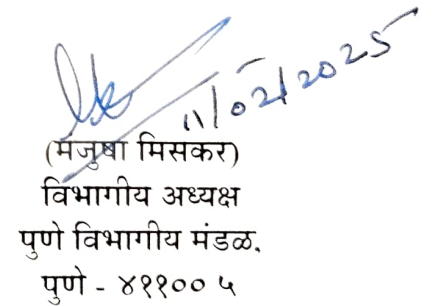 11/02/2025
(मंजुषा मिसकर)
विभागीय अध्यक्ष
पुणे विभागीय मंडळ.
पुणे - ४११०० ५